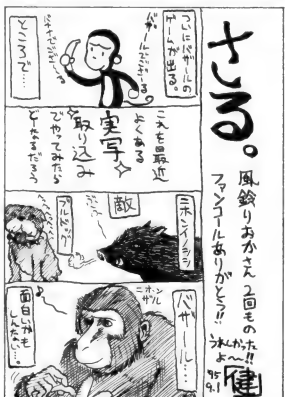 さる。
風鈴りおかさん2回もの
ファンコールありがとう!!
うれしかった
よ〜!!
'95
9.1
健
ついにバザールの
ゲームが出る。
バザールでござーる
バナナでござーる
ところで…
これを最近
よくある
実写
取り込み
でやってみたら
どーなるだろう
敵
ニホンイノシシ
ブルドッグ
バザール…
ニホン
ザル
面白いかも
しんない…。